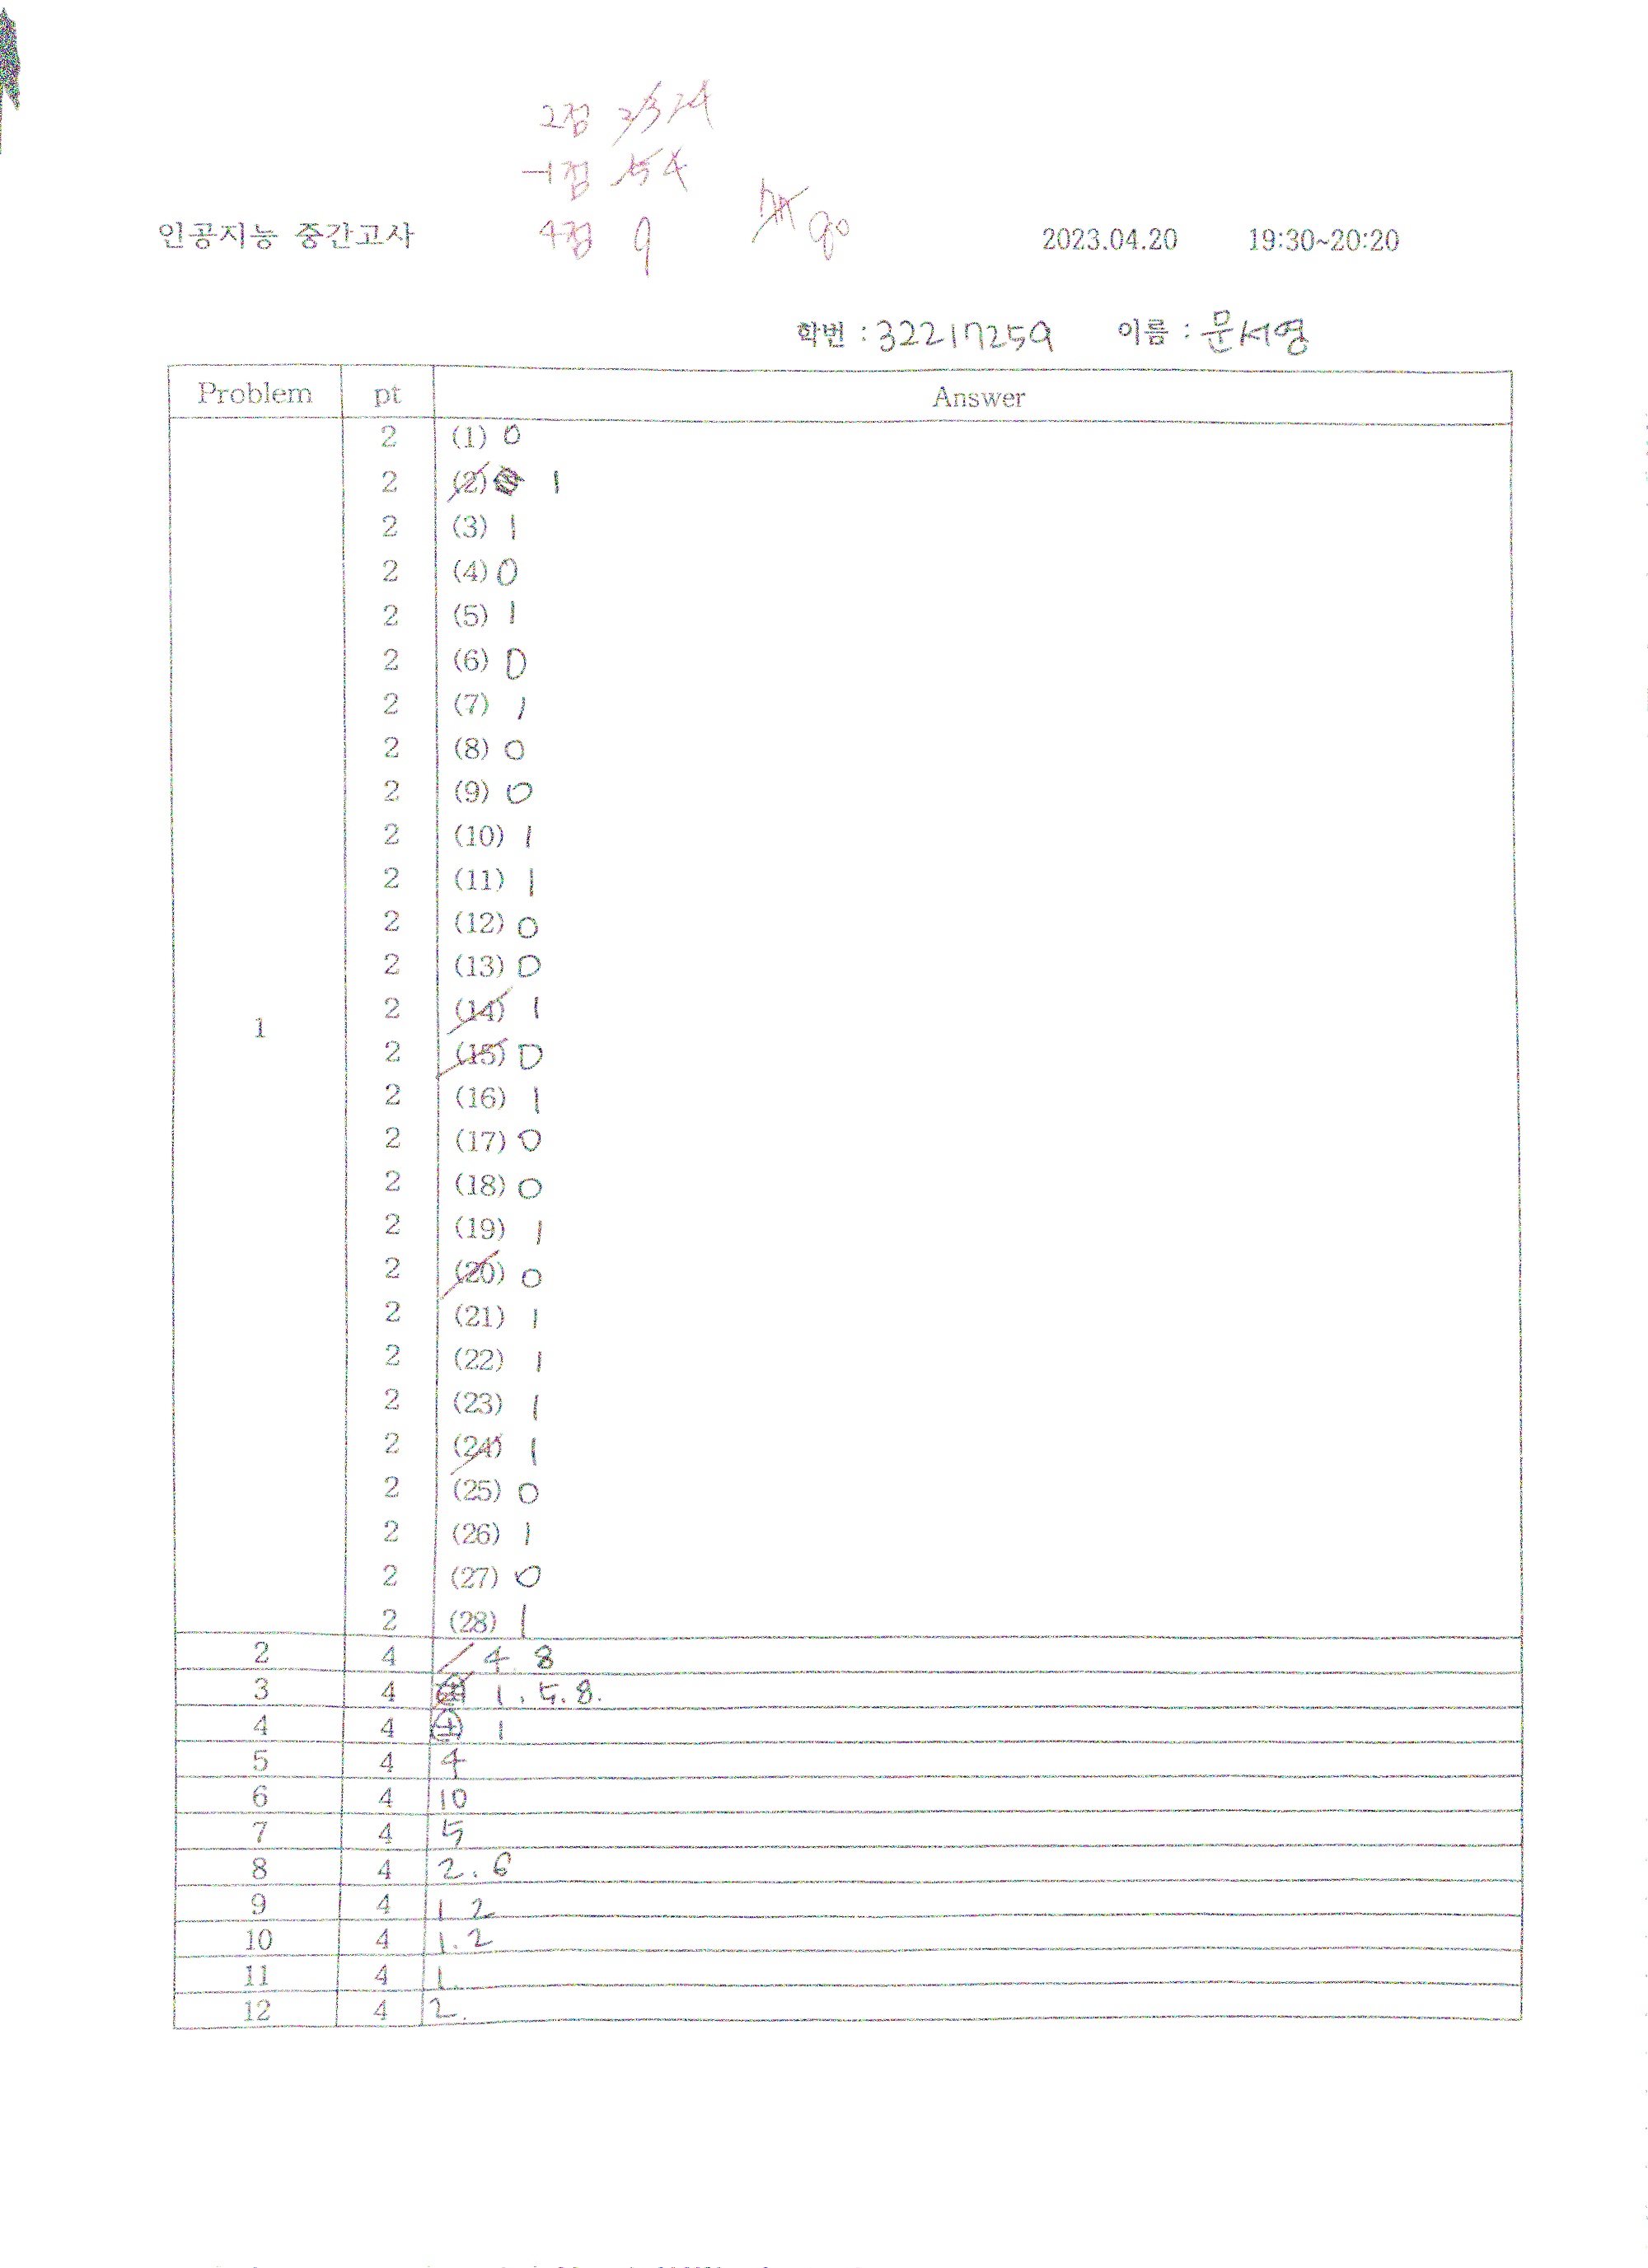 2점
-1점 4
4점 9
90
인공지능 중간고사 2023.04.20 19:30~20:20
학번 : 32217259 이름 : 문서영
Problem pt Answer
2 (1) 0
2 (2) 1
2 (3) 1
2 (4) 0
2 (5) 1
2 (6) 0
2 (7) 1
2 (8) 0
2 (9) 0
2 (10) 1
2 (11) 1
2 (12) 0
2 (13) 0
1 2 (14) 1
2 (15) 0
2 (16) 1
2 (17) 0
2 (18) 0
2 (19) 1
2 (20) 0
2 (21) 1
2 (22) 1
2 (23) 1
2 (24) 1
2 (25) 0
2 (26) 1
2 (27) 0
2 (28) 1
2 4 4. 8
3 4 1. 5. 8.
4 4 1
5 4 4
6 4 10
7 4 5
8 4 2. 6
9 4 1 2
10 4 1. 2
11 4 1.
12 4 2.